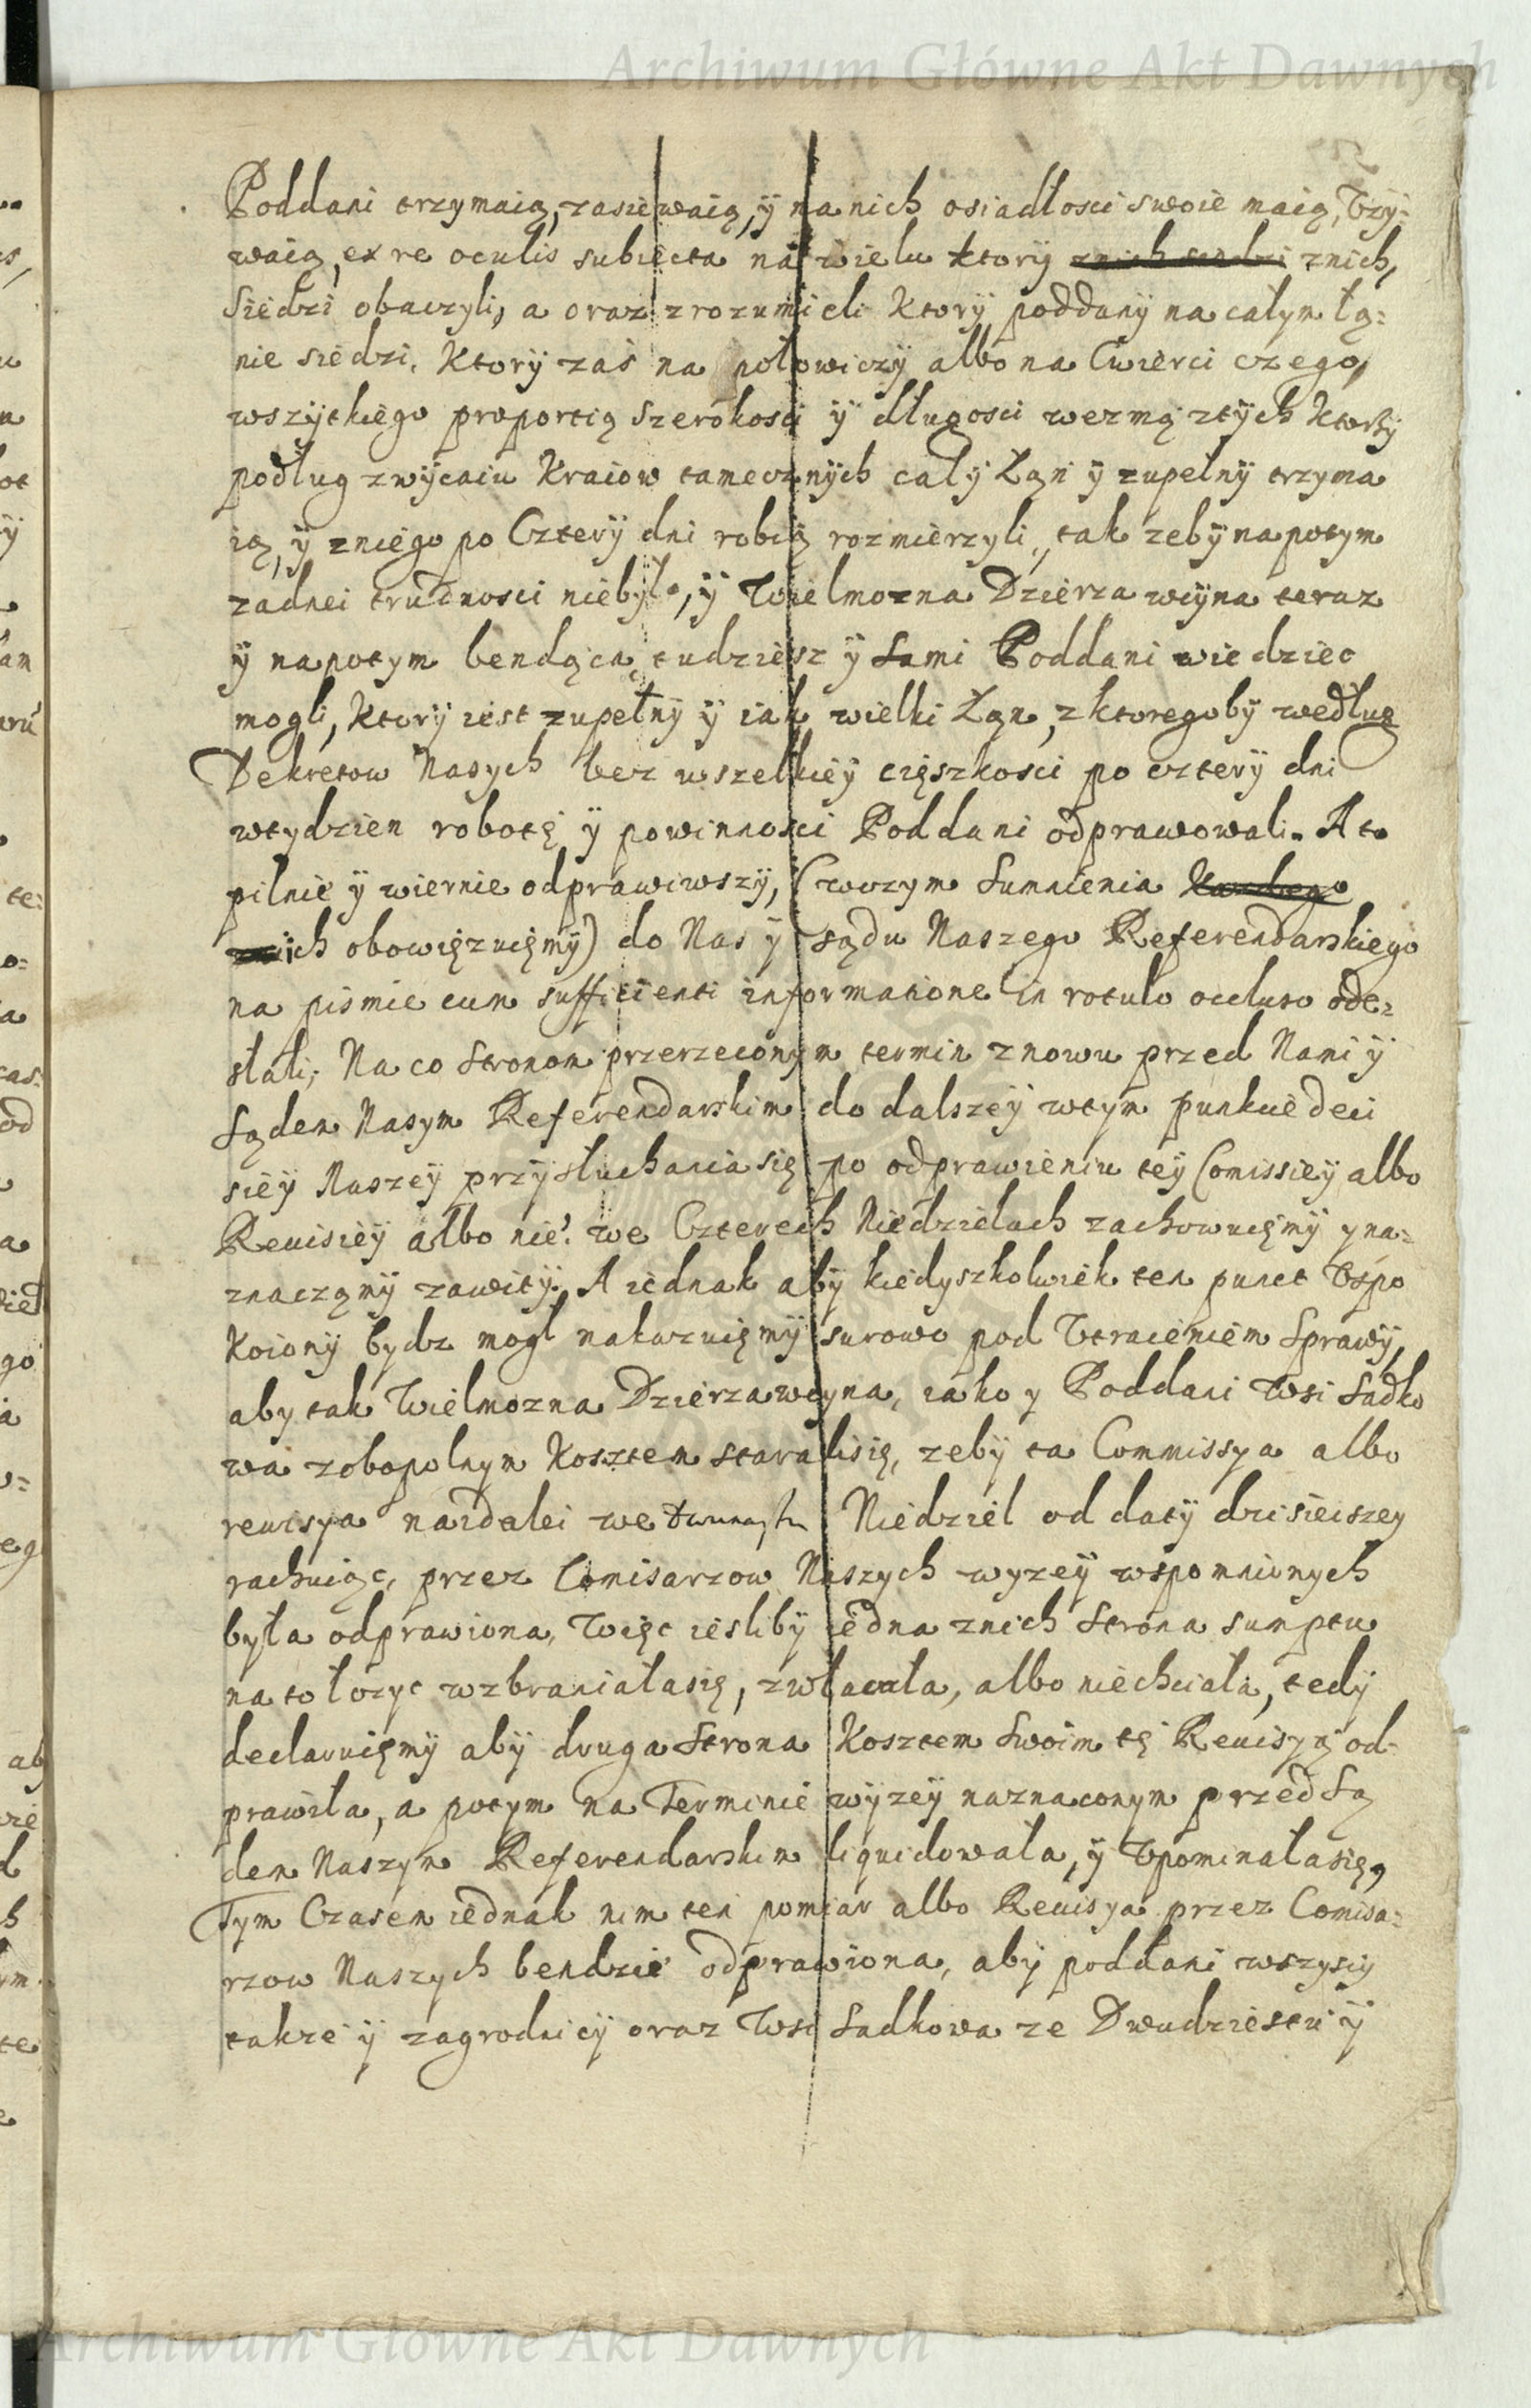 Archiwum Główne Akt Dawnych
Poddani trzymaią, zasiewaią, ÿ na nich osiadłosci swoie maią, Vzÿ=
waią, ex re oculis subiecta na wielu ktorÿ znich siedzi znich,
Siedzi obaczyli, a oraz zrozumieli Ktorÿ poddanÿ na całym łą=
nie siedzi, Ktorÿ zaś na połowiczÿ albo na Cwierci czego,
wszÿtkiego proportią Szerokosci ÿ długosci wezmą ztÿch Ktorzÿ
podług zwÿcaiu Kraiow tamecznÿch całÿ Łąn ÿ zupełnÿ trzyma
ią, ÿ zniego po Czterÿ dni robią rozmierzyli, tak zebÿ napotym
zadnei trudnosci niebÿło, ÿ Wielmozna Dzierzawcÿna teraz
ÿ napotym bendąca, tudziesz ÿ Sami Poddani wiedziec
mogli, Ktorÿ iest zupełnÿ ÿ iak wielki Łąn, zktoregobÿ według
Dekretow Nasych bez wszelkieÿ cięszkosci po czterÿ dni
wtydzien robotę ÿ powinnosci Poddani odprawowali. A to
pilnie ÿ wiernie odprawiwszÿ, (wczym Sumnienia Kazdego
znich obowięzuięmÿ) do Nas ÿ Sądu Naszego Referendarskiego
na pismie cum sufficienti informatione in rotulo occluso ode=
słali; Na co Stronom przerzeconym termin znowu przed Nami ÿ
Sądem Nasym Referendarskim do dalszeÿ wtym punkcie deci
sieÿ Naszeÿ przÿsłuchania się po odprawieniu teÿ Comissieÿ albo
Reuisieÿ albo nie? we Czterech Niedzielach zachowuięmÿ y na=
znacząmÿ zawitÿ. A iednak abÿ kiedyszkolwiek ten punct Vspo
Koionÿ bydz mogł nakazuięmÿ surowo pod Vtracieniem Sprawÿ,
aby tak Wielmozna Dzierzawcyna, iako y Poddani Wsi Sadko
wa zobopolnym Kosztem staralisię, zebÿ ta Commissya albo
rewisya naidalei we dwunastu Niedziel od datÿ dzisieiszey
rachuiąc, przez Comisarzow Naszych wyzeÿ wspomnionych
była odprawiona, Więc ieslibÿ iedna znich Strona sumptu
na to łozyc wzbraniałasię, zwłacała, albo niechciała, tedÿ
declaruięmÿ abÿ druga Strona Kosztem Swoim tę Reuisyą od=
prawiła, a potym na Terminie wÿzeÿ naznaconym przed Są
dem Naszym Referendarskim liquidowała, ÿ Vpominałasię,
Tym Czasem iednak nim ten pomiar albo Reuisya przez Comisa=
rzow Naszych bendzie odprawiona, abÿ poddani wszyscy
takze ÿ zagrodnicÿ oraz Wsi Sadkowa ze Dwudziestu ÿ
Archiwum Główne Akt Dawnych